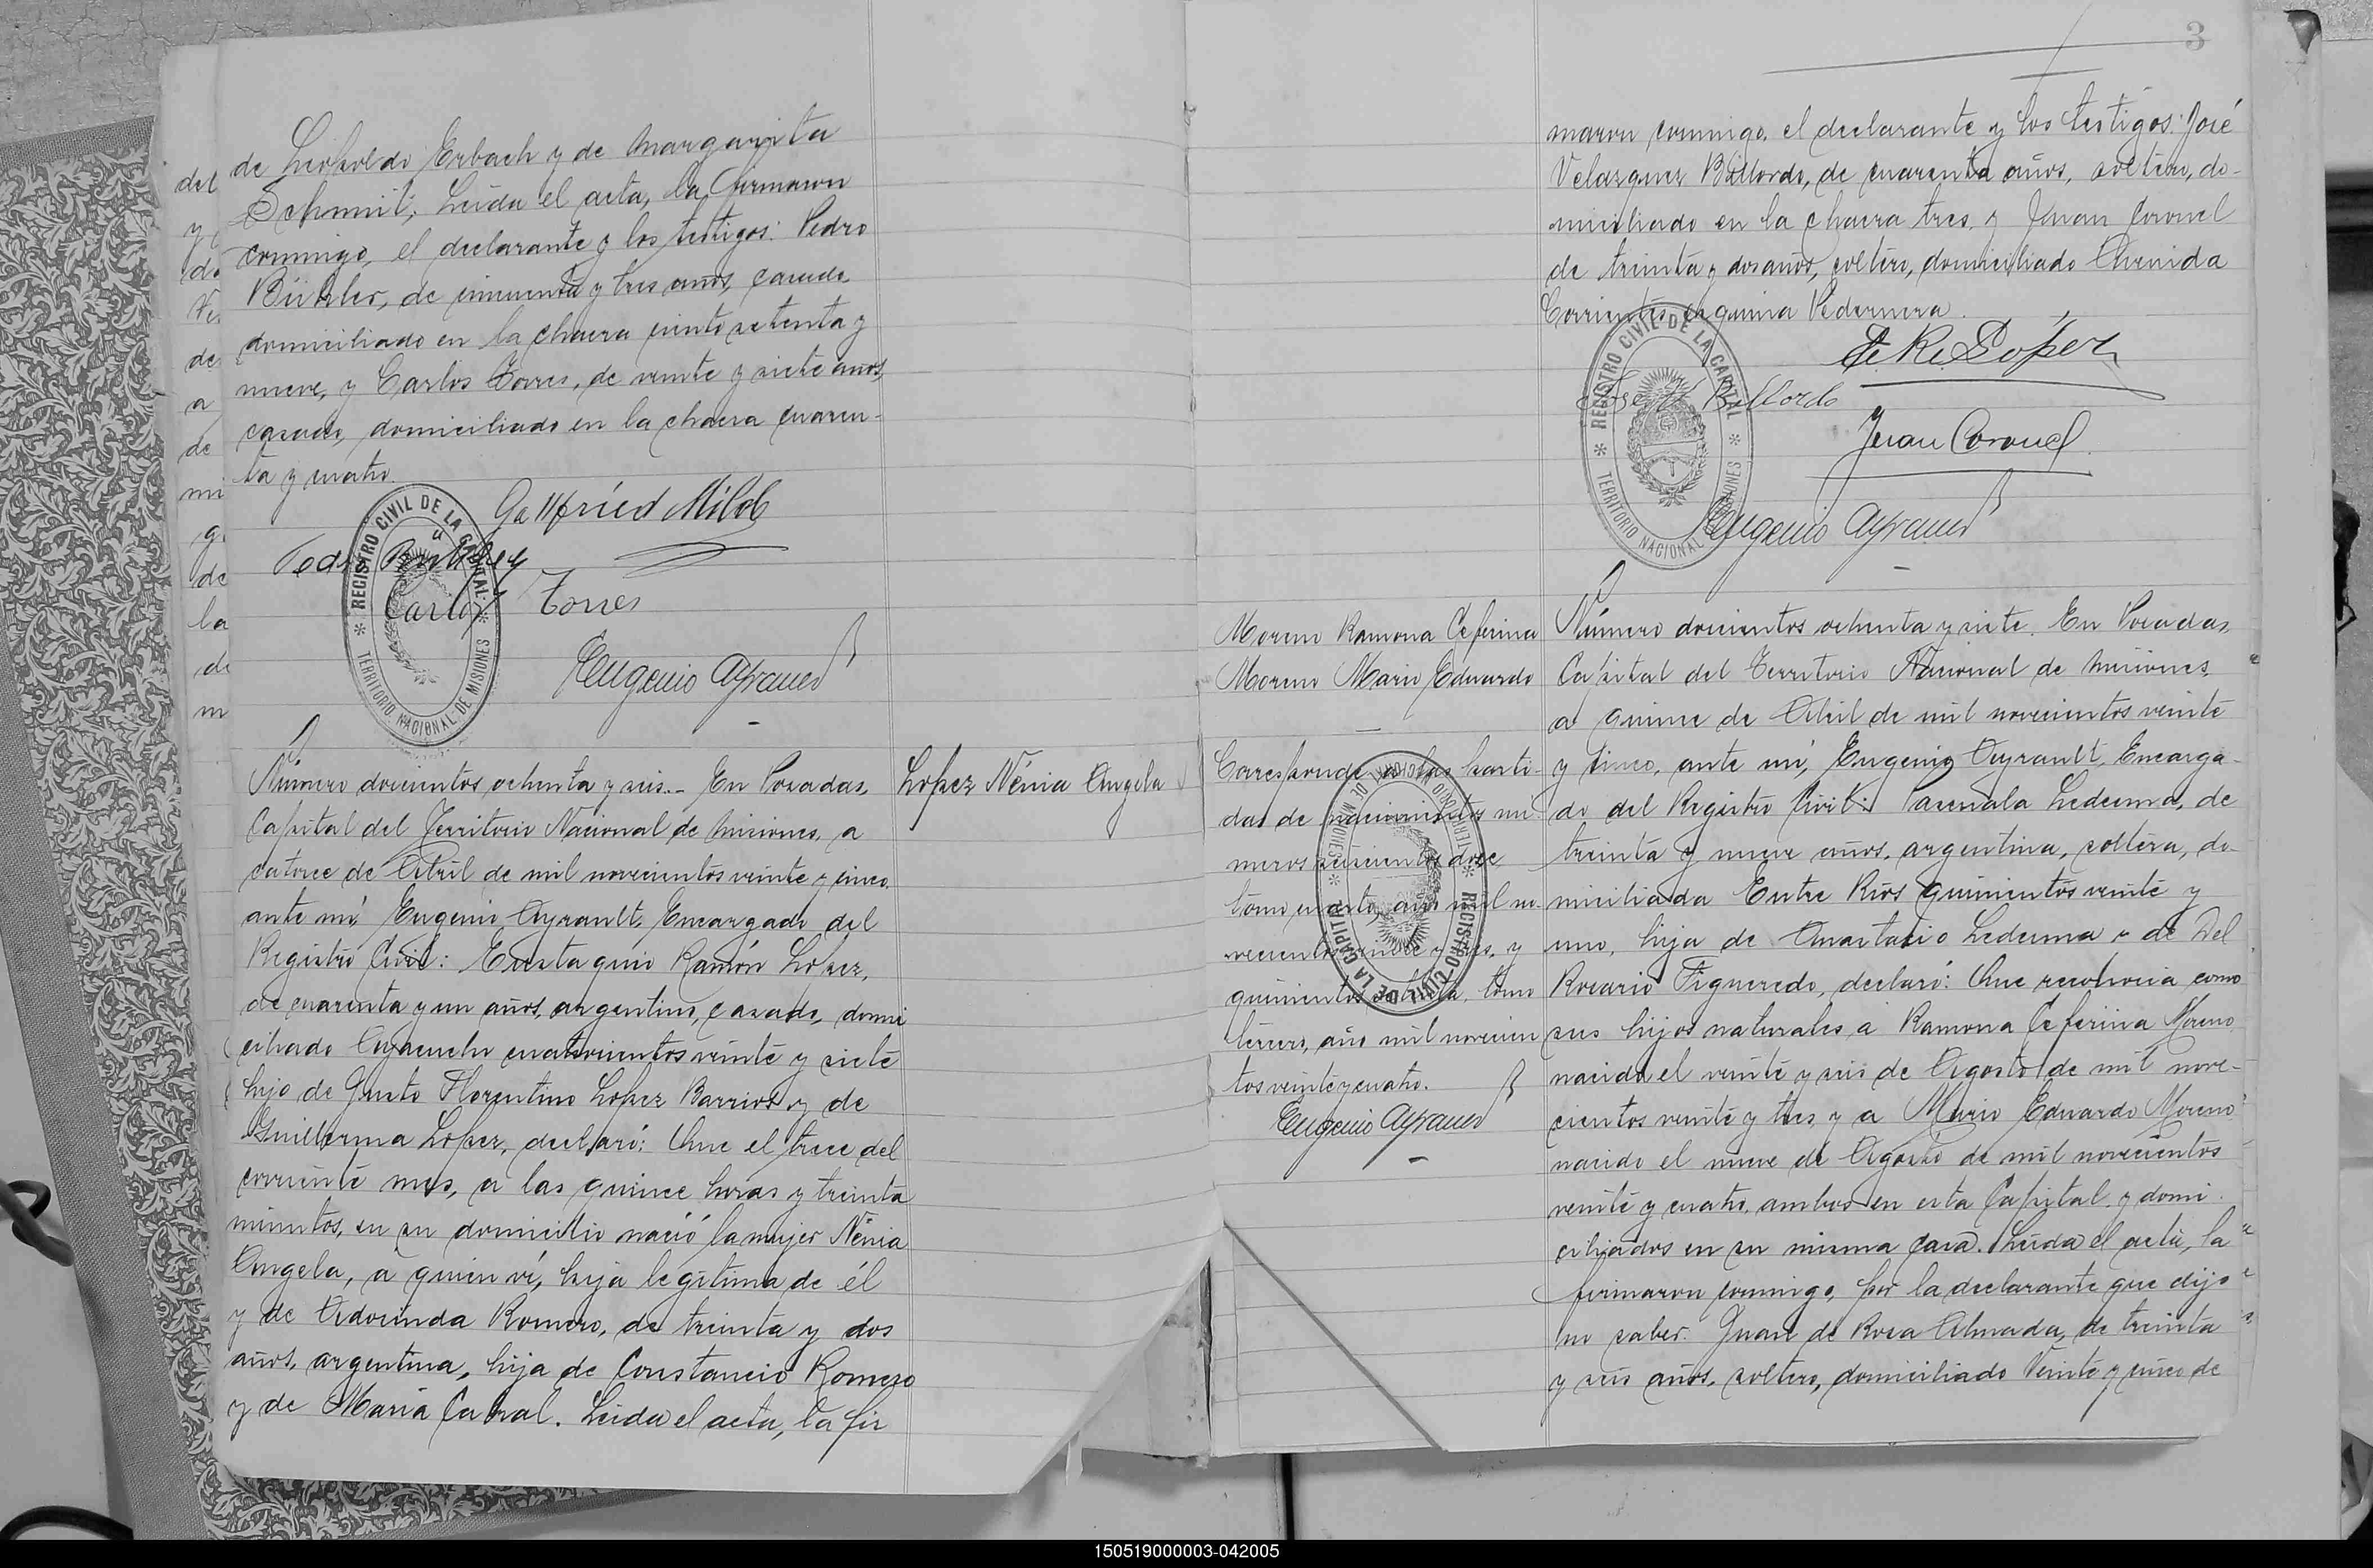 de Leopoldo Erbach y de Margarita
Schmit; Leida el acta, la firmaron
conmigo, el declarante y los testigos: Pedro
Bühler, de cincuenta y tres años, casado,
domiciliado en la chacra ciento setenta y
nueve, y Carlos Torres, de veinte y siete años,
casado, domiciliado en la chacra cuaren-
ta y cuatro.
Carlos Torres
Eugenio Ayrault
REGISTRO CIVIL DE LA CAPITAL
TERRITORIO NACIONAL DE MISIONES
Lopez Nénia Angela
Número doscientos ochenta y seis.- En Posadas,
Capital del Territorio Nacional de Misiones, a
catorce de Abril de mil novecientos veinte y cinco,
ante mí, Eugenio Ayrault, Encargado del
Registro Civil: Eustaquio Ramón Lopez,
de cuarenta y un años, argentino, casado, domi
ciliado Ayacucho cuatrocientos veinte y siete
hijo de Justo Florentino Lopez Barrios y de
Guillerma Lopez, declaró: Que el trece del
corriente mes, a las quince horas y treinta
minutos, en su domicilio nació la mujer Nénia
Angela, a quien ví, hija legítima de él
y de Adorinda Romero, de treinta y dos
años, argentina, hija de Constancio Romero
y de María Cabral. Leida el acta, la fir
3
maron conmigo, el declarante y los testigos: José
Velazquez Billordo, de cuarenta años, soltero, do-
miciliado en la chacra tres, y Juan Coronel
de treinta y dos años, soltero, domiciliado Avenida
Corrientes esquina Pedernera.
E. R. Lopez
José V. Billordo
Juan Coronel
Eugenio Ayrault
REGISTRO CIVIL DE LA CAPITAL
TERRITORIO NACIONAL DE MISIONES
Moreno Ramona Ceferina
Moreno Mario Eduardo
Corresponde a las parti-
das de nacimientos nú-
meros seiscientos doce
tomo cuarto, año mil no
vecientos veinte y tres, y
quinientos ochenta, tomo
tercero, año mil novecien
tos veinte y cuatro.
Eugenio Ayrault
REGISTRO CIVIL DE LA CAPITAL
TERRITORIO NACIONAL DE MISIONES
Número doscientos ochenta y siete. En Posadas,
Capital del Territorio Nacional de Misiones,
a quince de Abril de mil novecientos veinte
y cinco, ante mí, Eugenio Ayrault, Encarga-
do del Registro Civil: Pascuala Ledesma, de
treinta y nueve años, argentina, soltera, do-
miciliada Entre Rios quinientos veinte y
uno, hija de Anastasio Ledesma y de Del
Rosario Figueredo, declaró: Que reconocia como
sus hijos naturales a Ramona Ceferina Moreno
nacida el veinte y seis de Agosto de mil nove-
cientos veinte y tres y a Mario Eduardo Moreno
nacido el nueve de Agosto de mil novecientos
veinte y cuatro, ambos en esta Capital y domi-
ciliados en su misma casa. Leida el acta, la
firmaron conmigo, por la declarante que dijo
no saber: Juan de Rosa Almada, de treinta
y seis años, soltero, domiciliado Veinte y cinco de
150519000003-042005